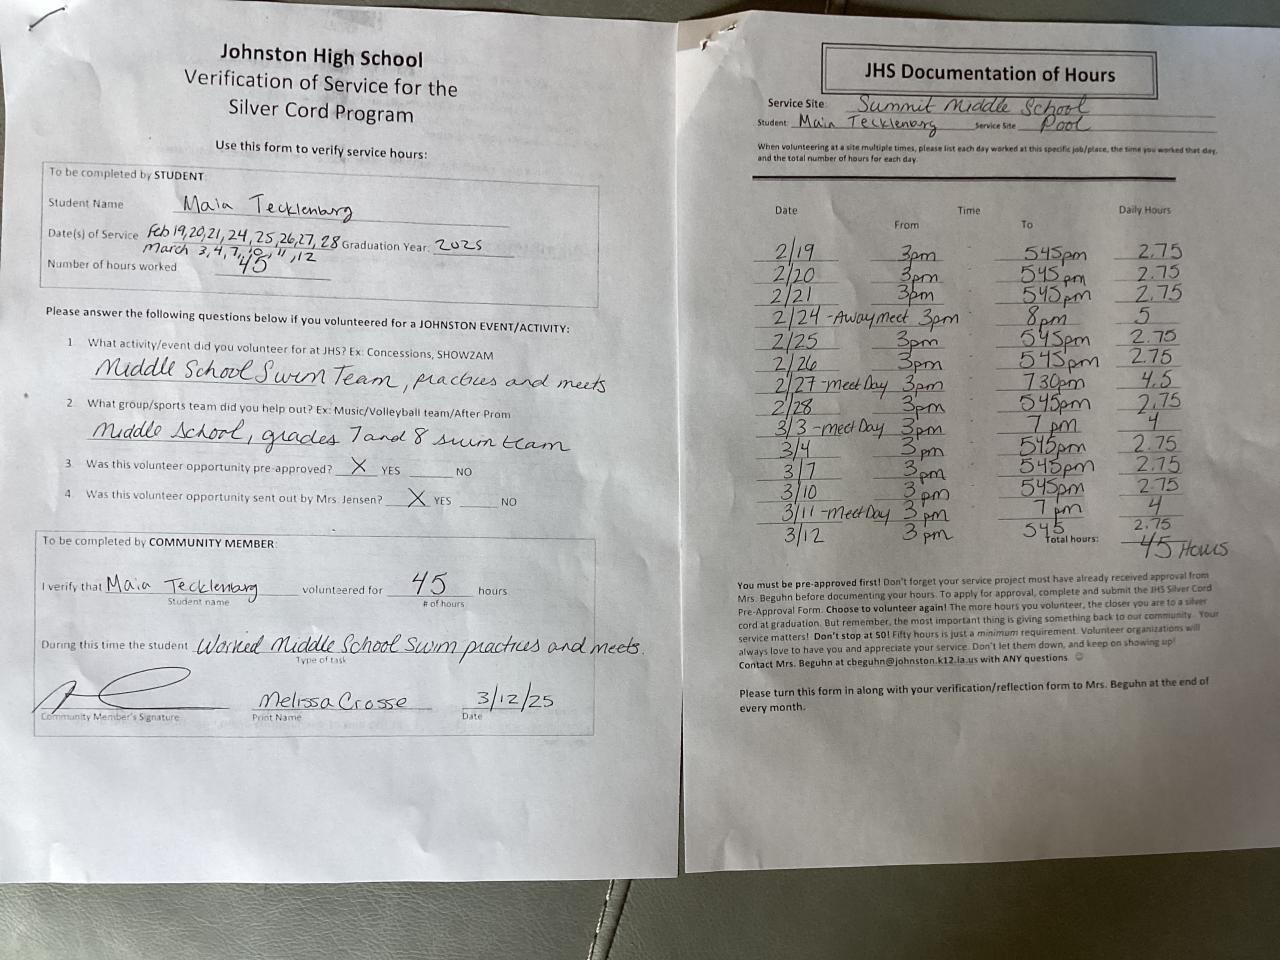 Johnston High School
Verification of Service for the
Silver Cord Program
Use this form to verify service hours:
To be completed by STUDENT:
Student Name Maia Tecklenburg
Date(s) of Service Feb 19,20,21,24,25,26,27,28 Graduation Year: 2025
March 3,4,7,10,11,12
Number of hours worked 45
Please answer the following questions below if you volunteered for a JOHNSTON EVENT/ACTIVITY:
1. What activity/event did you volunteer for at JHS? Ex: Concessions, SHOWZAM
Middle School Swim Team, practices and meets
2. What group/sports team did you help out? Ex: Music/Volleyball team/After Prom
Middle School, grades 7 and 8 swim team
3. Was this volunteer opportunity pre-approved? X YES NO
4. Was this volunteer opportunity sent out by Mrs. Jensen? X YES NO
To be completed by COMMUNITY MEMBER:
I verify that Maia Tecklenburg volunteered for 45 hours
Student name # of hours
During this time the student Worked Middle School Swim practices and meets.
Type of task
Melissa Crosse 3/12/25
Community Member's Signature Print Name Date
JHS Documentation of Hours
Service Site: Summit Middle School
Student: Maia Tecklenburg Service Site Pool
When volunteering at a site multiple times, please list each day worked at this specific job/place, the time you worked that day,
and the total number of hours for each day.
Date Time Daily Hours
From To
2/19 3pm 545pm 2.75
2/20 3pm 545pm 2.75
2/21 3pm 545pm 2.75
2/24 - Away meet 3pm 8pm 5
2/25 3pm 545pm 2.75
2/26 3pm 545pm 2.75
2/27 - meet Day 3pm 730pm 4.5
2/28 3pm 545pm 2.75
3/3 - meet Day 3pm 7pm 4
3/4 3pm 545pm 2.75
3/7 3pm 545pm 2.75
3/10 3pm 545pm 2.75
3/11 - Meet Day 3pm 7pm 4
3/12 3pm 545 2.75
Total hours: 45 Hours
You must be pre-approved first! Don't forget your service project must have already received approval from
Mrs. Beguhn before documenting your hours. To apply for approval, complete and submit the JHS Silver Cord
Pre-Approval Form. Choose to volunteer again! The more hours you volunteer, the closer you are to a silver
cord at graduation. But remember, the most important thing is giving something back to our community. Your
service matters! Don't stop at 50! Fifty hours is just a minimum requirement. Volunteer organizations will
always love to have you and appreciate your service. Don't let them down, and keep on showing up!
Contact Mrs. Beguhn at cbeguhn@johnston.k12.ia.us with ANY questions ☺
Please turn this form in along with your verification/reflection form to Mrs. Beguhn at the end of
every month.